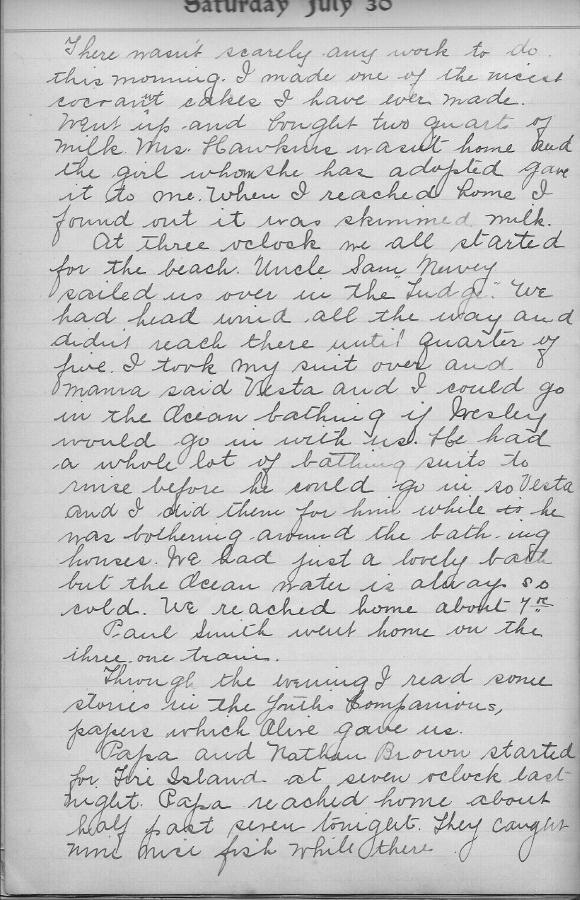 Saturday July 30
There wasn't scarely any work to do
this morning. I made one of the nicest
cocoanut cakes I have ever made.
Went up and bought two quarts of
milk Mrs. Hawkins wasn't home and
the girl whom she has adopted gave
it to me. When I reached home I
found out it was skimmed milk.
At three oclock we all started
for the beach. Uncle Sam Newey
sailed us over in the "Judge". We
had head wind all the way and
didn't reach there until quarter of
five. I took my suit over and
mama said Vesta and I could go
in the Ocean bathing if Wesley
would go in with us. He had
a whole lot of bathing suits to
rinse before he could go in so Vesta
and I did them for him while he
was bothering around the bath-ing
houses. We had just a lovely bath
but the Ocean water is always so
cold. We reached home about 7
Paul Smith went home on the
three one train.
Through the evening I read some
stories in the Youths Companions,
papers which Alive gave us.
Papa and Nathan Brown started
for Fire Island at seven oclock last
night. Papa reached home about
half past seven tonight. They caught
nine nice fish while there.